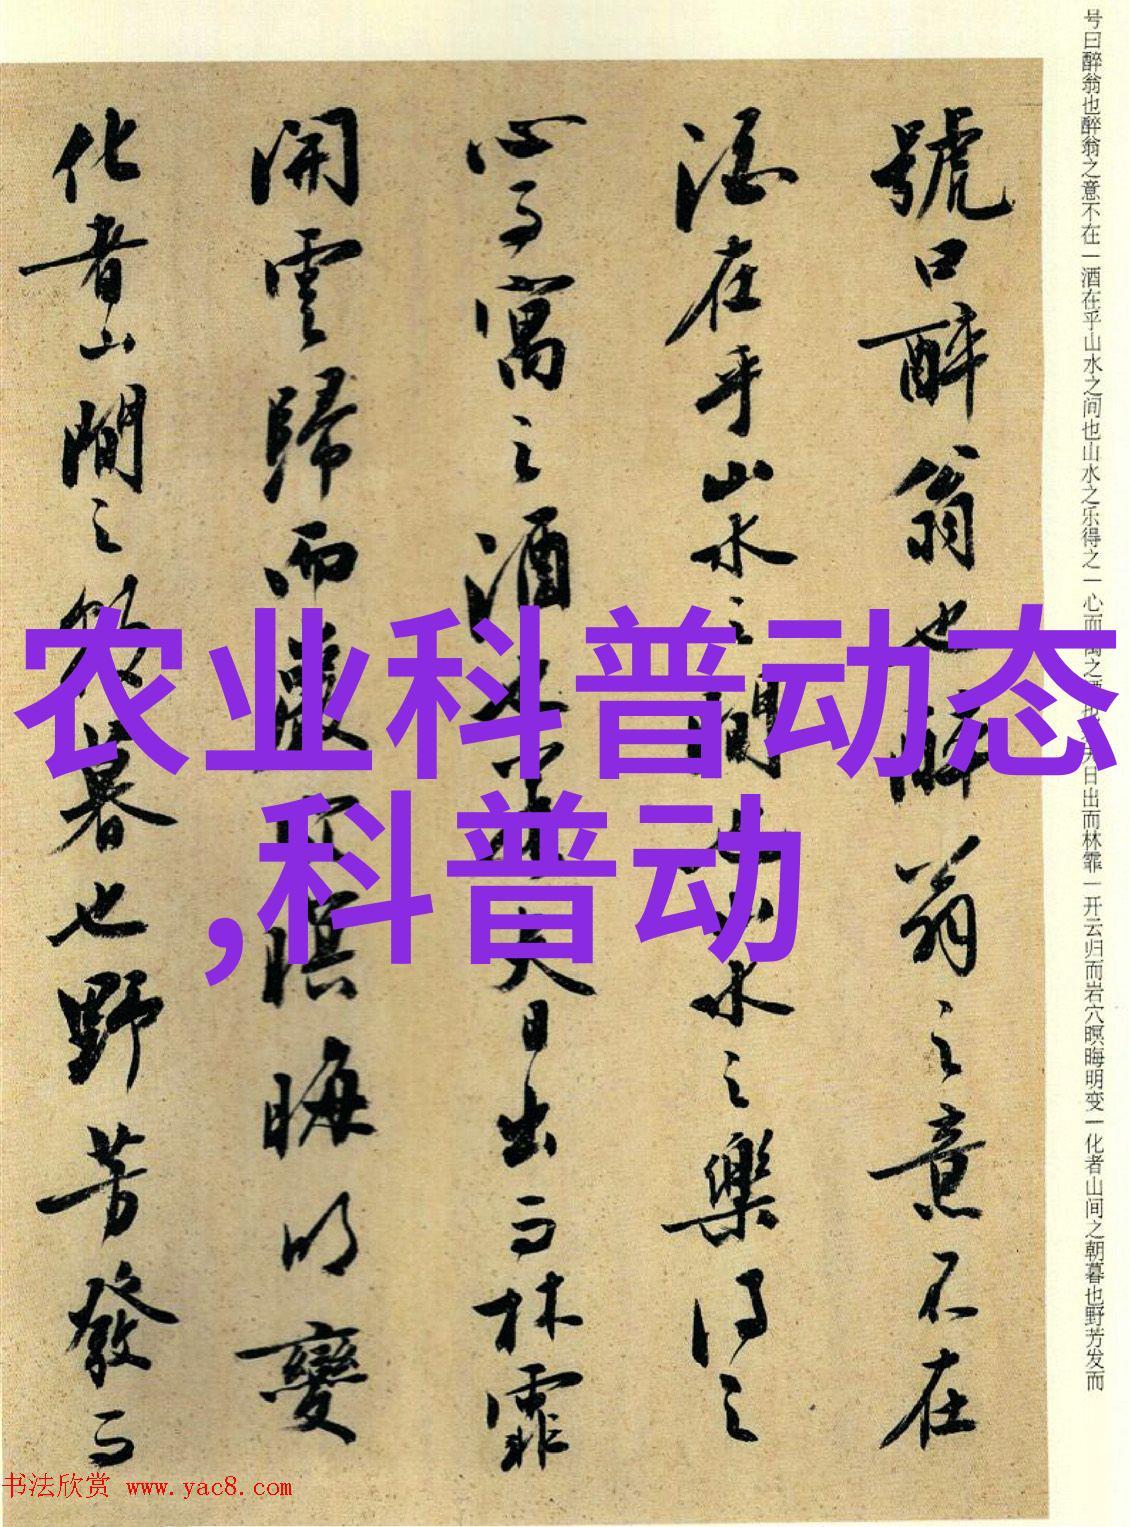 号曰醉翁也醉翁之意不在一酒在乎山水之间也山水之乐得之一心而寓之酒也夫日出而林霏一开云归而岩穴暝晦明变一化者山间之朝暮也野芳发而
號曰醉翁也醉翁之意不在
酒在乎山水之間也山水之樂得之
心而寓之酒也若夫日出而林霏
開雲歸而巖穴暝晦明變
化者山間之朝暮也野芳發而
农业科普动态
,科普动
书法欣赏 www.yac8.com